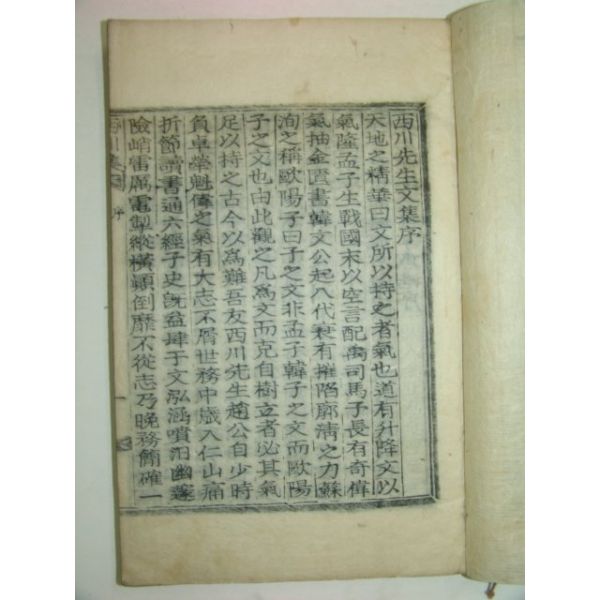 西川先生文集序
天地之精華曰文所以持之者氣也道有升降文以
氣隆孟子生戰國末以空言配禹司馬子長有奇偉
氣抽金匱書韓文公起八代衰有摧陷廓淸之力蘇
洵之稱歐陽子曰子之文非孟子韓子之文而歐陽
子之文也由此觀之凡爲文而克自樹立者必其氣
足以持之古今以爲難吾友西川先生趙公自少時
負卓犖魁偉之氣有大志不屑世務中歲入仁山痛
折節讀書通六經子史旣益肆于文泓涵噴汨幽邃
險峭雷厲電掣縱橫顚倒靡不從志乃晩務簡確一
西川集
序